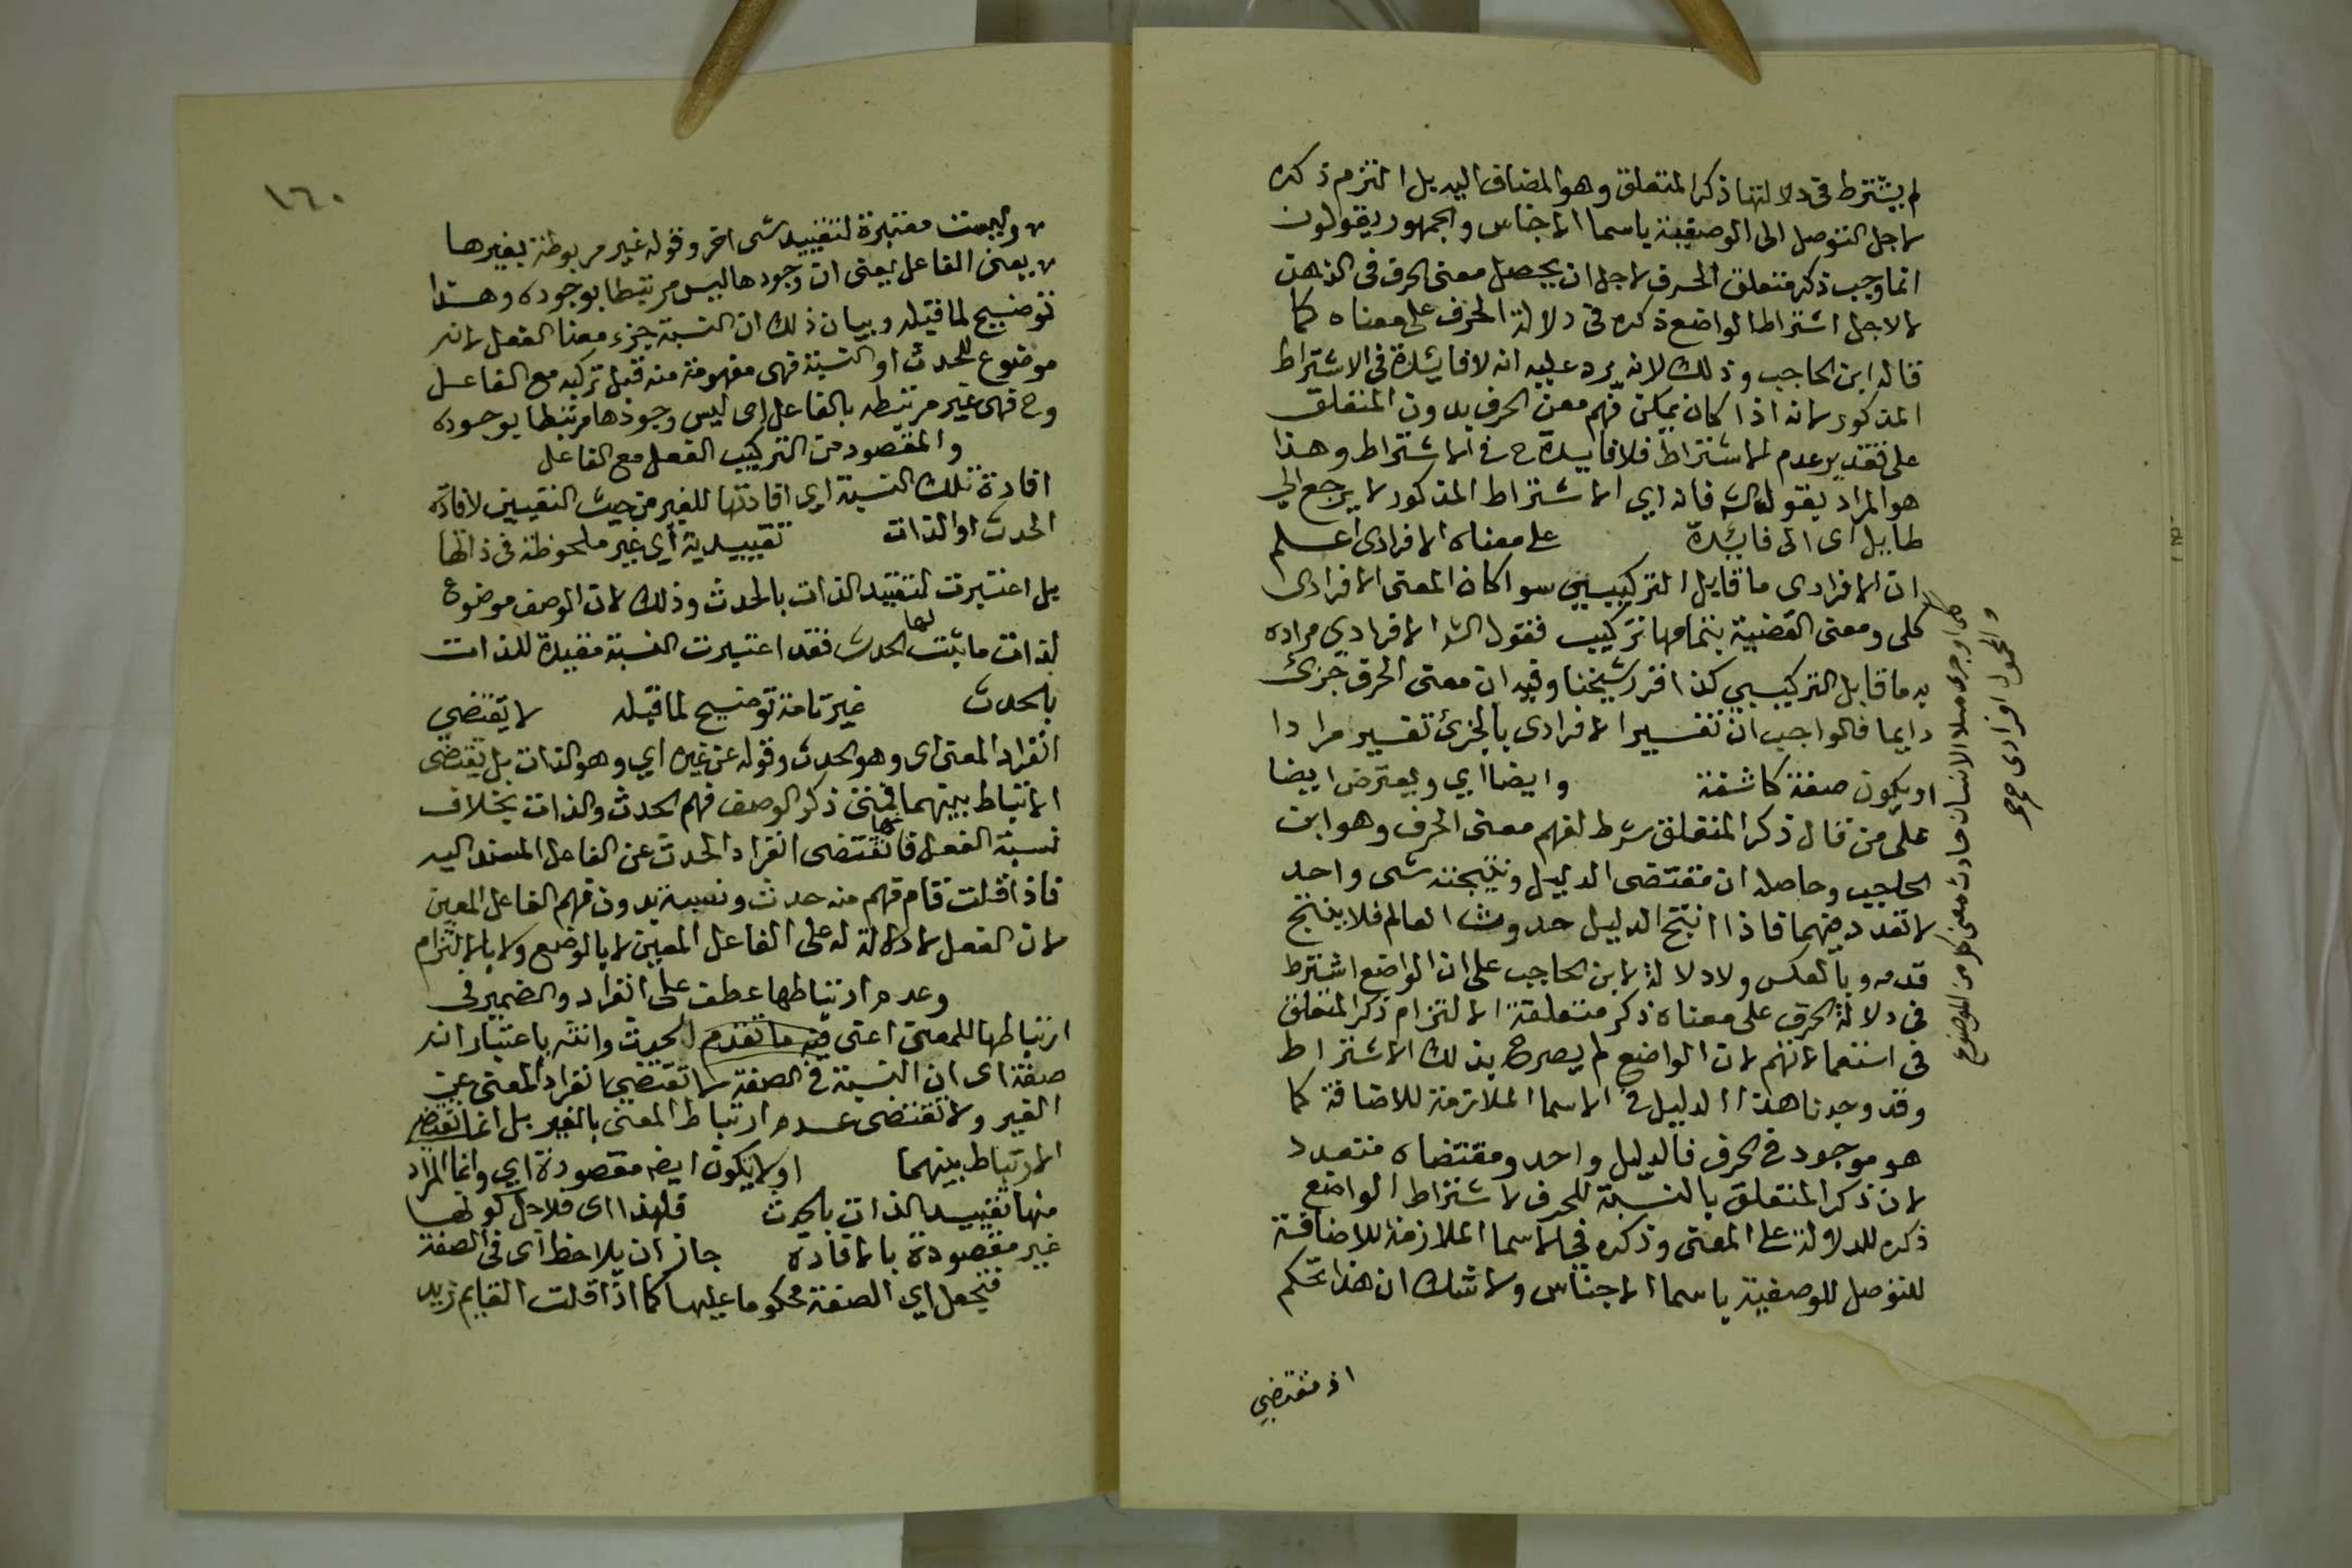 لم يشترط في دلالتها ذكر المتعلق وهو المضاف اليه بل التزم ذكره
لاجل التوصل الى الوصفية باسما الاجناس والجمهور يقولون
انما وجب ذكر متعلق الحرف لاجل ان يحصل معنى الحرف في الذهن
لا لاجل اشتراط الواضع ذكره في دلالة الحرف على معناه كما
قاله ابن الحاجب وذلك لانه يرد عليه انه لا فايدة في الاشتراط
المذكور لانه اذا كان يمكن فهم معنى الحرف بدون المتعلق
على تقدير عدم الاشتراط فلا فايدة ح في الاشتراط وهذا
هو المراد بقول الش فانه اي الاشتراط المذكور لا يرجع الي
طايل اى الى فايدة على معناه الافرادى اعلم
ان الافرادى ما قابل التركيبي سوا كان المعنى الافرادى
كلى ومعنى القضية بتمامها تركيب فقول الش الافرادي مراده
به ما قابل التركيبي كذا قرر شيخنا وفيه ان معنى الحرف جزئ
دايما فالواجب ان تفسير الافرادى بالجزئ تفسير مرادا
او يكون صفة كاشفة وايضا اي ويعترض ايضا
على من قال ذكر المتعلق شرط لفهم معنى الحرف وهو ابن
الحاجب وحاصله ان مقتضى الدليل ونتيجته شى واحد
لا تعدد فيهما فاذا انتج الدليل حدوث العالم فلا ينتج
قدمه وبالعكس ولا دلالة لابن الحاجب على ان الواضع اشترط
في دلالة الحرف على معناه ذكر متعلقه الا لتزام ذكر المتعلق
في استعمالاتهم لان الواضع لم يصرح بذلك الاشتراط
وقد وجدنا هذا الدليل في الاسما الملازمة للاضافة كما
هو موجود في الحرف فالدليل واحد ومقتضاه متعدد
لان ذكر المتعلق بالنسبة للحرف لاشتراط الواضع
ذكره للدلالة على المعنى وذكره في الاسما الملازمة للاضافة
للتوصل للوصفية باسما الاجناس ولا شك ان هذا تحكم
اذ مقتضي
والمحمول افرادى
١٦٠
وليست معتبرة لتقييد شى اخر وقوله غير مربوطة بغيرها
يعنى الفاعل يعنى ان وجودها ليس مرتبطا بوجوده وهذا
توضيح لما قبله وبيان ذلك ان النسبة جزء معنا الفعل لانه
موضوع للحدث او النسبة فهى مفهومة منه قبل تركبه مع الفاعل
وح فهى غير مرتبطه بالفاعل اى ليس وجودها مرتبطا بوجوده
والمقصود من التركيب الفعل مع الفاعل
افادة تلك النسبة اي افادتها للغير من حيث التعيين لا فادة
الحدث او الذات تقييدية أي غير ملحوظة في ذاتها
بل اعتبرت لتقييد الذات بالحدث وذلك لان الوصف موضوع
لذات ما ثبت لها الحدث فقد اعتبرت النسبة مقيدة للذات
بالحدث غير تامة توضيح لما قبله لا يقتضي
انفراد المعنى اى وهو الحدث وقوله عن غيره اي وهو الذات بل يقتضى
الارتباط بينهما فمتى ذكر الوصف فهم الحدث والذات بخلاف
نسبة الفعل فانها تقتضى انفراد الحدث عن الفاعل المسند اليه
فاذا قلت قام فهم منه حدث ونسبة بدون فهم الفاعل المعين
لان الفعل لا دلالة له على الفاعل المعين لا بالوضع ولا بالالتزام
وعدم ارتباطها عطف على انفراد والضمير في
ارتباطها للمعنى اعنى فيه ما تقدم الحدث وانثه باعتبار انه
صفة اى ان النسبة في الصفة لا تقتضى انفراد المعنى عن
الغير ولا تقتضى عدم ارتباط المعنى بالغير بل انما تقتضى
الارتباط بينهما اولا يكون ايضه مقصودة اي وانما المراد
منها تقييد الذات بالحدث فلهذا اى فلاجل كونها
غير مقصودة بالافادة جاز ان يلاحظ اى في الصفة
فتجعل اي الصفة محكوما عليها كما اذا قلت القايم زيد